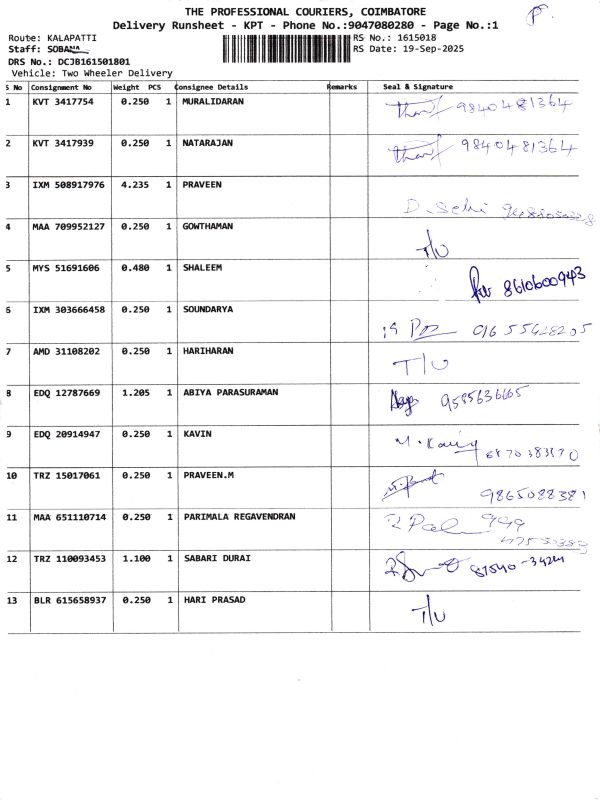 THE PROFESSIONAL COURIERS, COIMBATORE
Delivery Runsheet - KPT - Phone No.:9047080280 - Page No.:1
Route: KALAPATTI
RS No.: 1615018
Staff: SOBANA
RS Date: 19-Sep-2025
DRS No.: DCJB161501801
Vehicle: Two Wheeler Delivery
S No Consignment No Weight PCS Consignee Details Remarks Seal & Signature
1 KVT 3417754 0.250 1 MURALIDARAN 9840481364
2 KVT 3417939 0.250 1 NATARAJAN 9840481364
3 IXM 508917976 4.235 1 PRAVEEN
4 MAA 709952127 0.250 1 GOWTHAMAN T/U
5 MYS 51691606 0.480 1 SHALEEM 8610600943
6 IXM 303666458 0.250 1 SOUNDARYA
7 AMD 31108202 0.250 1 HARIHARAN T/U
8 EDQ 12787669 1.205 1 ABIYA PARASURAMAN 9585636665
9 EDQ 20914947 0.250 1 KAVIN
10 TRZ 15017061 0.250 1 PRAVEEN.M 9865088381
11 MAA 651110714 0.250 1 PARIMALA REGAVENDRAN
12 TRZ 110093453 1.100 1 SABARI DURAI
13 BLR 615658937 0.250 1 HARI PRASAD T/U